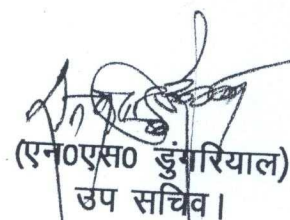 (एन0एस0 डुंगरियाल)
उप सचिव।